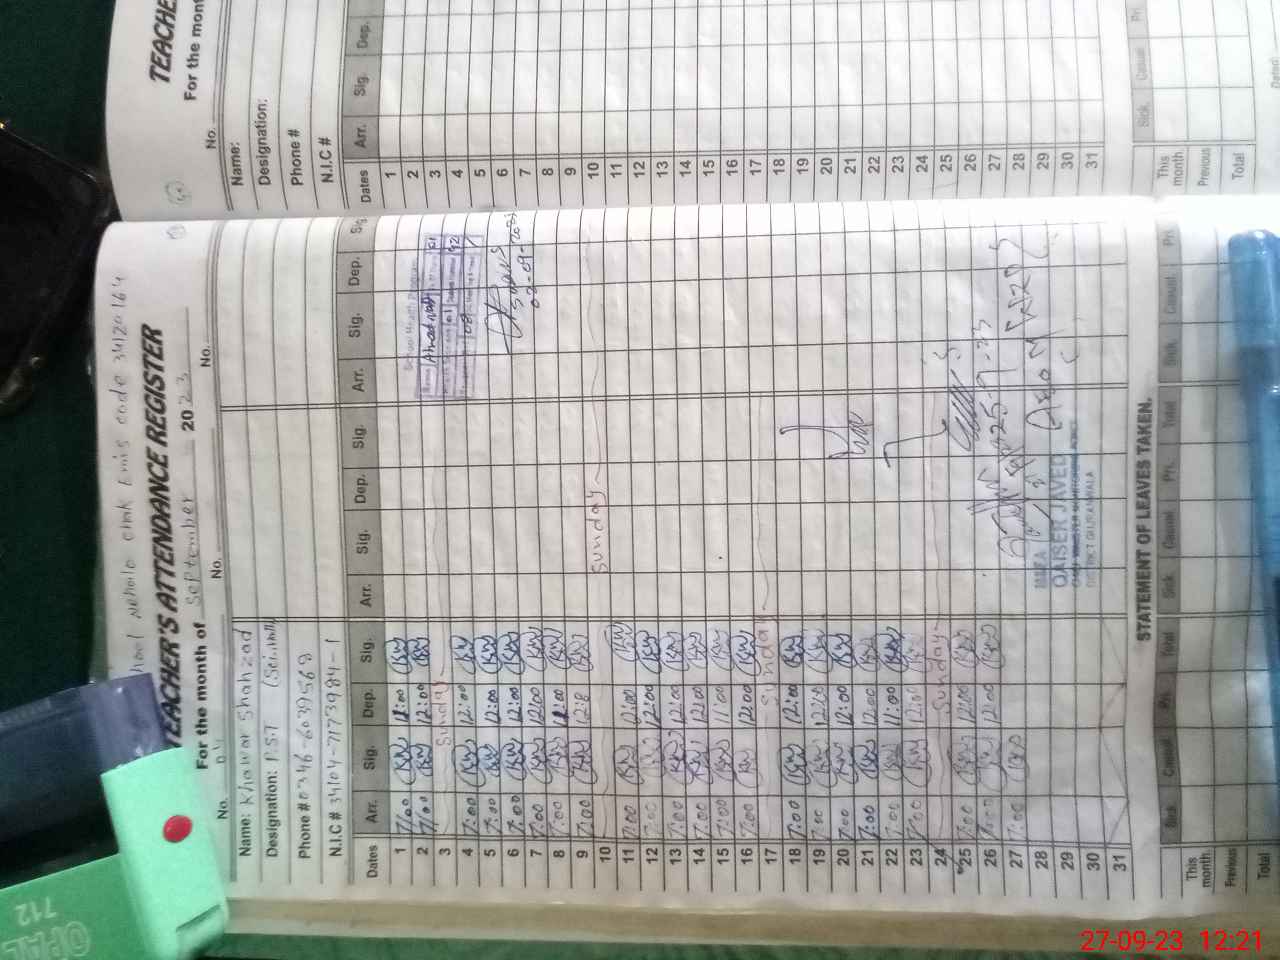 Emis code 34120164
TEACHER'S ATTENDANCE REGISTER
For the month of September 2023
No. No. No.
Name: Khawar Shahzad
Designation: P.S.T
Phone # 0346-6039568
N.I.C # 34104-7173984-1
Dates Arr. Sig. Dep. Sig. Arr. Sig. Dep. Sig. Arr. Sig. Dep. Sig
1 7:00 12:00
2 7:00 12:00
3 Sunday
4 7:00 12:00
5 7:00 12:00
6 7:00 12:00
7 7:00 12:00
8 7:00
9 7:00
10 Sunday
11 7:00 12:00
12 7:00 12:00
13 7:00 12:00
14 7:00 12:00
15 7:00 11:00
16 7:00 12:00
17 Sunday
18 7:00 12:00
19 7:00 12:00
20 7:00 12:00
21 7:00 12:00
22 7:00 11:00
23 7:00 12:00
24 Sunday
25 7:00 12:00
26 7:00 12:00
27 7:00
28
29
30
31
School Health Program
02-09-2023
25-9-23
QAISER JAVED
DISTRICT GUJRANWALA
STATEMENT OF LEAVES TAKEN.
Sick Casual Pri. Total Sick Casual Pri. Total Sick Casual Pri.
This month
Previous
Total
TEACHE
For the mont
No.
Name:
Designation:
Phone #
N.I.C #
Dates Arr. Sig. Dep.
1
2
3
4
5
6
7
8
9
10
11
12
13
14
15
16
17
18
19
20
21
22
23
24
25
26
27
28
29
30
31
Sick. Casual Pri.
This month
Previous
Total
Dated:
OPAL
712
27-09-23 12:21